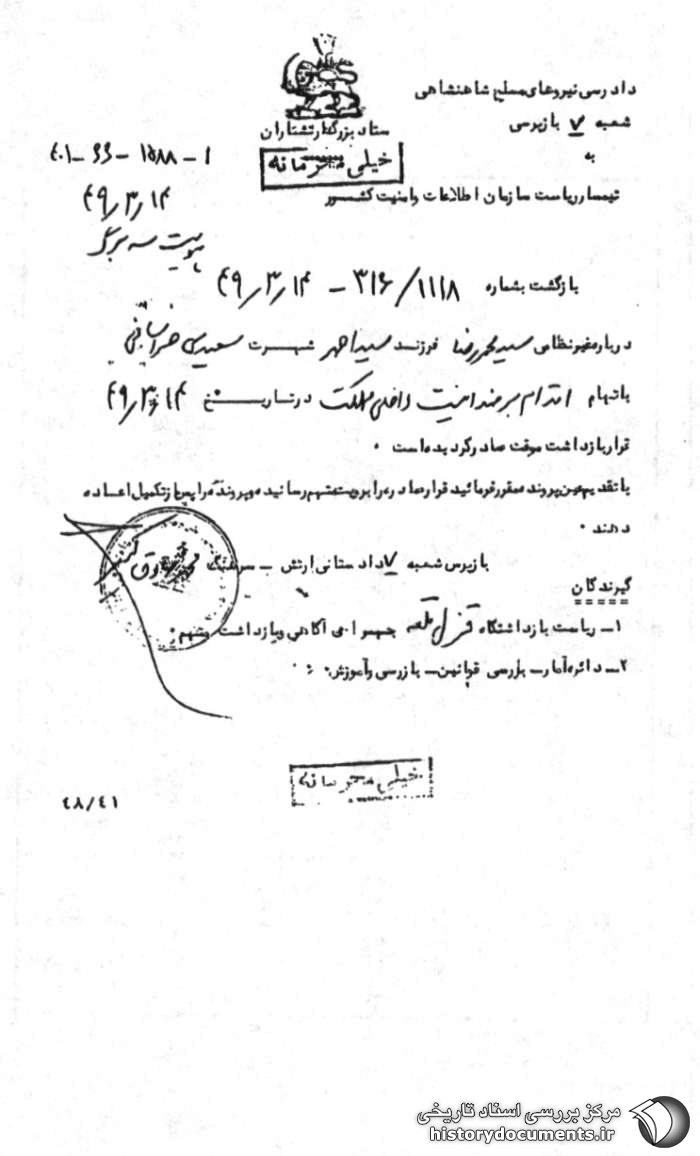 دادرسی نیروهای مسلح شاهنشاهی
شعبه ۷ بازپرسی
به
تیمسار ریاست سازمان اطلاعات و امنیت کشور
ستاد بزرگ ارتشتاران
خیلی محرمانه
۴۰۱-۶۶-۱۵۸۸-۱
۴۹٫۳٫۱۴
پیوست سه برگ
بازگشت بشماره ۳۱۶/۱۱۱۸ - ۴۹٫۳٫۱۴
درباره غیرنظامی سیدمحمدرضا فرزند سیداحمد شهرت سعیدی خراسانی
باتهام اقدام برضد امنیت داخلی مملکت در تاریخ ۴۹٫۳٫۱۴
قرار بازداشت موقت صادر گردیده است .
با تقدیم عین پرونده مقرر فرمائید قرار صادره را برویت متهم رسانیده و پرونده را پس از تکمیل اعاده
دهند .
بازپرس شعبه ۷ دادستانی ارتش - سرهنگ
گیرندگان
۱- ریاست بازداشتگاه قزل قلعه جهت آگاهی و بازداشت متهم .
۲- دائره آمار - بررسی قوانین - بازرسی و آموزش .
خیلی محرمانه
۴۸/۴۱
مرکز بررسی اسناد تاریخی
historydocuments.ir